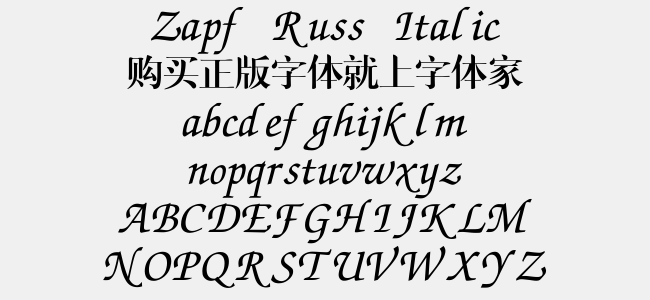 Zapf Russ Italic
购买正版字体就上字体家
abcdefghijklm
nopqrstuvwxyz
ABCDEFGHIJKLM
NOPQRSTUVWXYZ